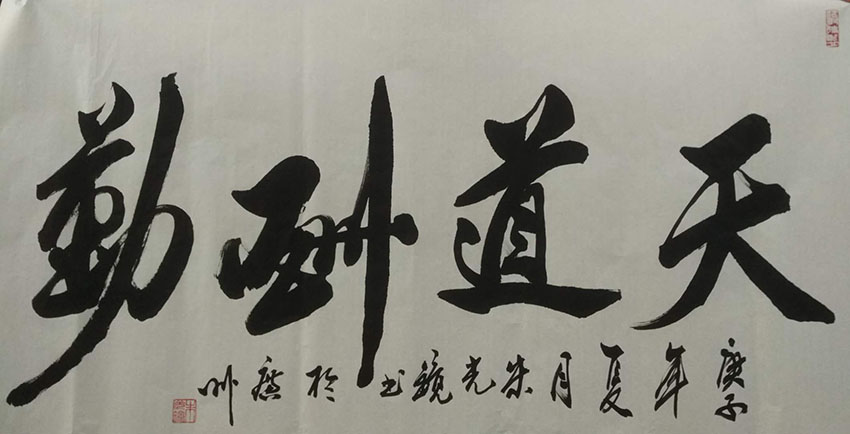 天道酬勤
庚子年夏月朱光镜书於广州